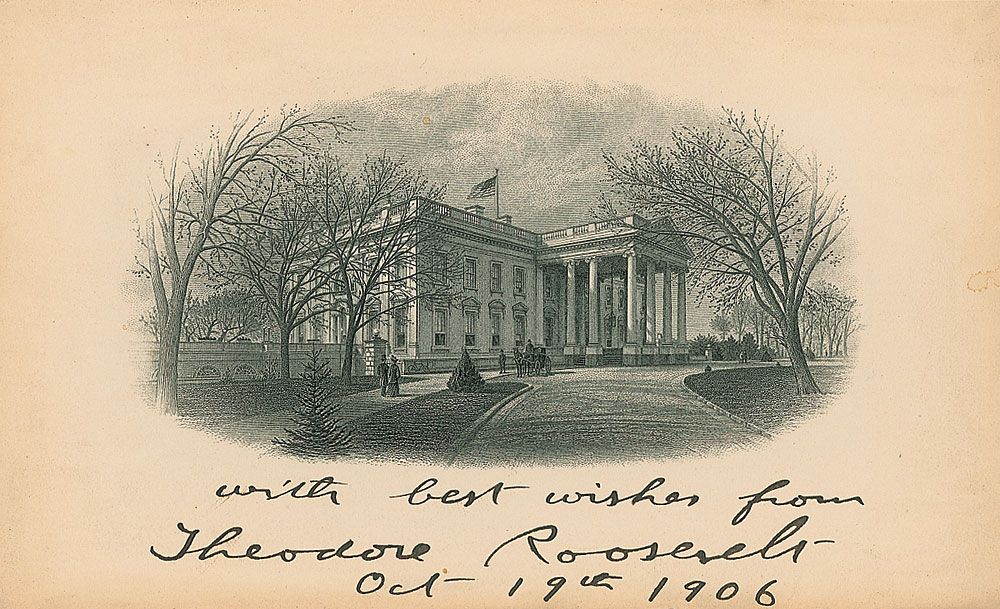 with best wishes from
Theodore Roosevelt
Oct 19th 1906